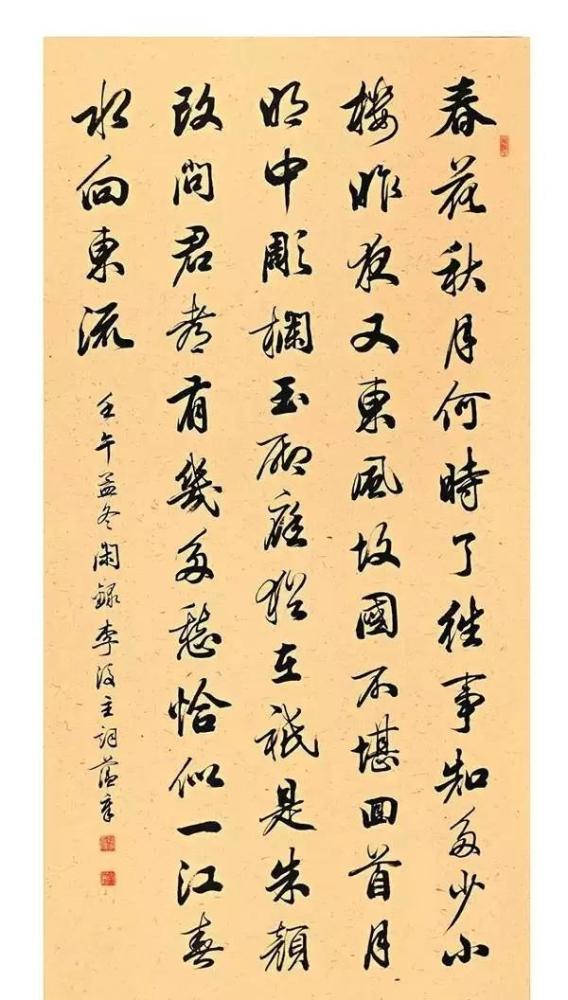 春花秋月何時了往事知多少小
樓昨夜又東風故國不堪回首月
明中彫欄玉砌應猶在祇是朱顏
改問君都有幾多愁恰似一江春
水向東流
壬午孟冬閑錄李後主詞